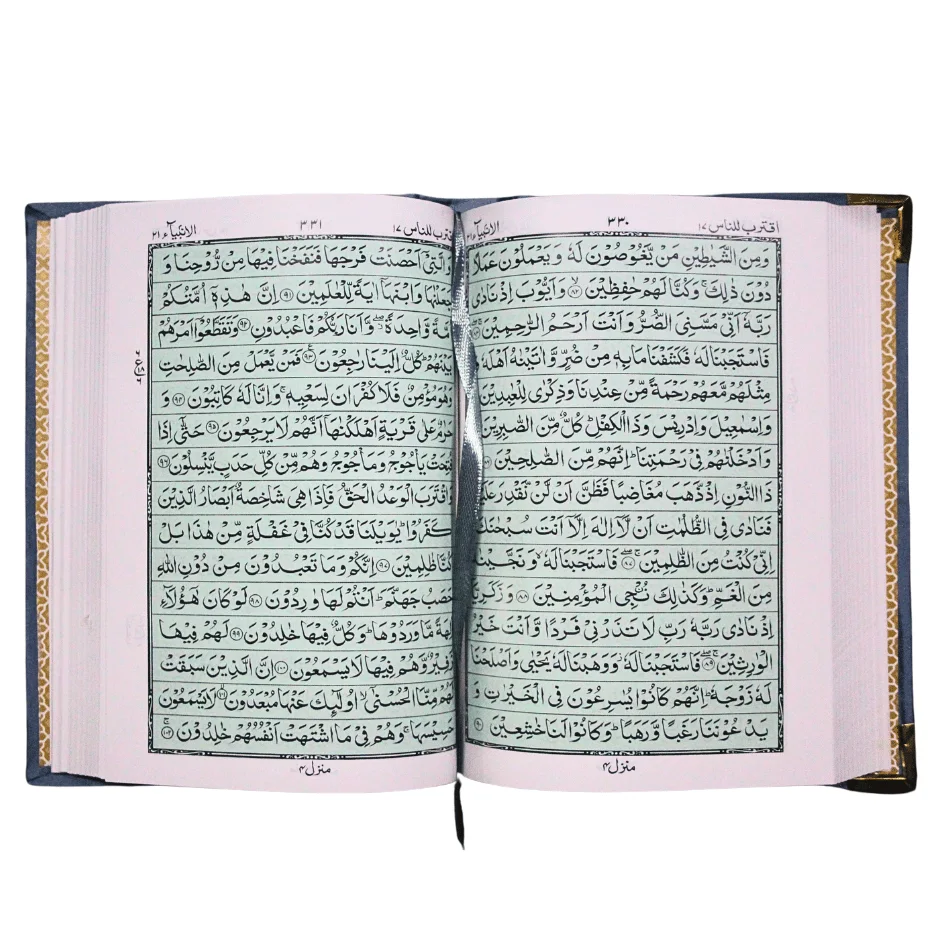 اقترب للناس ۱۷
۳۳۰
الانبیآء ۲۱
وَمِنَ الشَّيٰطِيْنِ مَنْ يَّغُوْصُوْنَ لَهٗ وَيَعْمَلُوْنَ عَمَلًا
دُوْنَ ذٰلِكَ ۚ وَكُنَّا لَهُمْ حٰفِظِيْنَ ۝۸۲ وَاَيُّوْبَ اِذْ نَادٰى
رَبَّهٗۤ اَنِّيْ مَسَّنِيَ الضُّرُّ وَاَنْتَ اَرْحَمُ الرّٰحِمِيْنَ
فَاسْتَجَبْنَا لَهٗ فَكَشَفْنَا مَا بِهٖ مِنْ ضُرٍّ وَّاٰتَيْنٰهُ اَهْلَهٗ
مِثْلَهُمْ مَّعَهُمْ رَحْمَةً مِّنْ عِنْدِنَا وَذِكْرٰى لِلْعٰبِدِيْنَ
وَاِسْمٰعِيْلَ وَاِدْرِيْسَ وَذَا الْكِفْلِ ؕ كُلٌّ مِّنَ الصّٰبِرِيْنَ
وَاَدْخَلْنٰهُمْ فِيْ رَحْمَتِنَا ؕ اِنَّهُمْ مِّنَ الصّٰلِحِيْنَ
ذَا النُّوْنِ اِذْ ذَّهَبَ مُغَاضِبًا فَظَنَّ اَنْ لَّنْ نَّقْدِرَ عَلَيْهِ
فَنَادٰى فِي الظُّلُمٰتِ اَنْ لَّاۤ اِلٰهَ اِلَّاۤ اَنْتَ سُبْحٰنَكَ
اِنِّيْ كُنْتُ مِنَ الظّٰلِمِيْنَ ۝۸۷ فَاسْتَجَبْنَا لَهٗ ۙ وَنَجَّيْنٰهُ
مِنَ الْغَمِّ ؕ وَكَذٰلِكَ نُـنْجِي الْمُؤْمِنِيْنَ ۝۸۸ وَزَكَرِيَّاۤ
اِذْ نَادٰى رَبَّهٗ رَبِّ لَا تَذَرْنِيْ فَرْدًا وَّاَنْتَ خَيْرُ
الْوٰرِثِيْنَ ۝۸۹ فَاسْتَجَبْنَا لَهٗ وَوَهَبْنَا لَهٗ يَحْيٰى وَاَصْلَحْنَا
لَهٗ زَوْجَهٗ ؕ اِنَّهُمْ كَانُوْا يُسٰرِعُوْنَ فِي الْخَيْرٰتِ وَ
يَدْعُوْنَنَا رَغَبًا وَّرَهَبًا ؕ وَكَانُوْا لَنَا خٰشِعِيْنَ ۝۹۰
منزل ۴
اقترب للناس ۱۷
۳۳۱
الانبیآء ۲۱
وَالَّتِيْۤ اَحْصَنَتْ فَرْجَهَا فَنَفَخْنَا فِيْهَا مِنْ رُّوْحِنَا وَ
جَعَلْنٰهَا وَابْنَهَاۤ اٰيَةً لِّلْعٰلَمِيْنَ ۝۹۱ اِنَّ هٰذِهٖۤ اُمَّتُكُمْ
اُمَّةً وَّاحِدَةً ۖ وَّاَنَا رَبُّكُمْ فَاعْبُدُوْنِ ۝۹۲ وَتَقَطَّعُوْۤا اَمْرَهُمْ
بَيْنَهُمْ ؕ كُلٌّ اِلَيْنَا رٰجِعُوْنَ ۝۹۳ فَمَنْ يَّعْمَلْ مِنَ الصّٰلِحٰتِ
وَهُوَ مُؤْمِنٌ فَلَا كُفْرَانَ لِسَعْيِهٖ ۚ وَاِنَّا لَهٗ كٰتِبُوْنَ ۝۹۴ وَ
حَرٰمٌ عَلٰى قَرْيَةٍ اَهْلَكْنٰهَاۤ اَنَّهُمْ لَا يَرْجِعُوْنَ ۝۹۵ حَتّٰۤى اِذَا
فُتِحَتْ يَاْجُوْجُ وَمَاْجُوْجُ وَهُمْ مِّنْ كُلِّ حَدَبٍ يَّنْسِلُوْنَ ۝۹۶
وَاقْتَرَبَ الْوَعْدُ الْحَقُّ فَاِذَا هِيَ شَاخِصَةٌ اَبْصَارُ الَّذِيْنَ
كَفَرُوْا ؕ يٰوَيْلَنَا قَدْ كُنَّا فِيْ غَفْلَةٍ مِّنْ هٰذَا بَلْ
كُنَّا ظٰلِمِيْنَ ۝۹۷ اِنَّكُمْ وَمَا تَعْبُدُوْنَ مِنْ دُوْنِ اللّٰهِ
حَصَبُ جَهَنَّمَ ؕ اَنْتُمْ لَهَا وٰرِدُوْنَ ۝۹۸ لَوْ كَانَ هٰۤؤُلَآءِ
اٰلِهَةً مَّا وَرَدُوْهَا ؕ وَكُلٌّ فِيْهَا خٰلِدُوْنَ ۝۹۹ لَهُمْ فِيْهَا
زَفِيْرٌ وَّهُمْ فِيْهَا لَا يَسْمَعُوْنَ ۝۱۰۰ اِنَّ الَّذِيْنَ سَبَقَتْ
لَهُمْ مِّنَّا الْحُسْنٰۤى ۙ اُولٰٓئِكَ عَنْهَا مُبْعَدُوْنَ ۝۱۰۱ لَا يَسْمَعُوْنَ
حَسِيْسَهَا ۚ وَهُمْ فِيْ مَا اشْتَهَتْ اَنْفُسُهُمْ خٰلِدُوْنَ ۝۱۰۲
منزل ۴